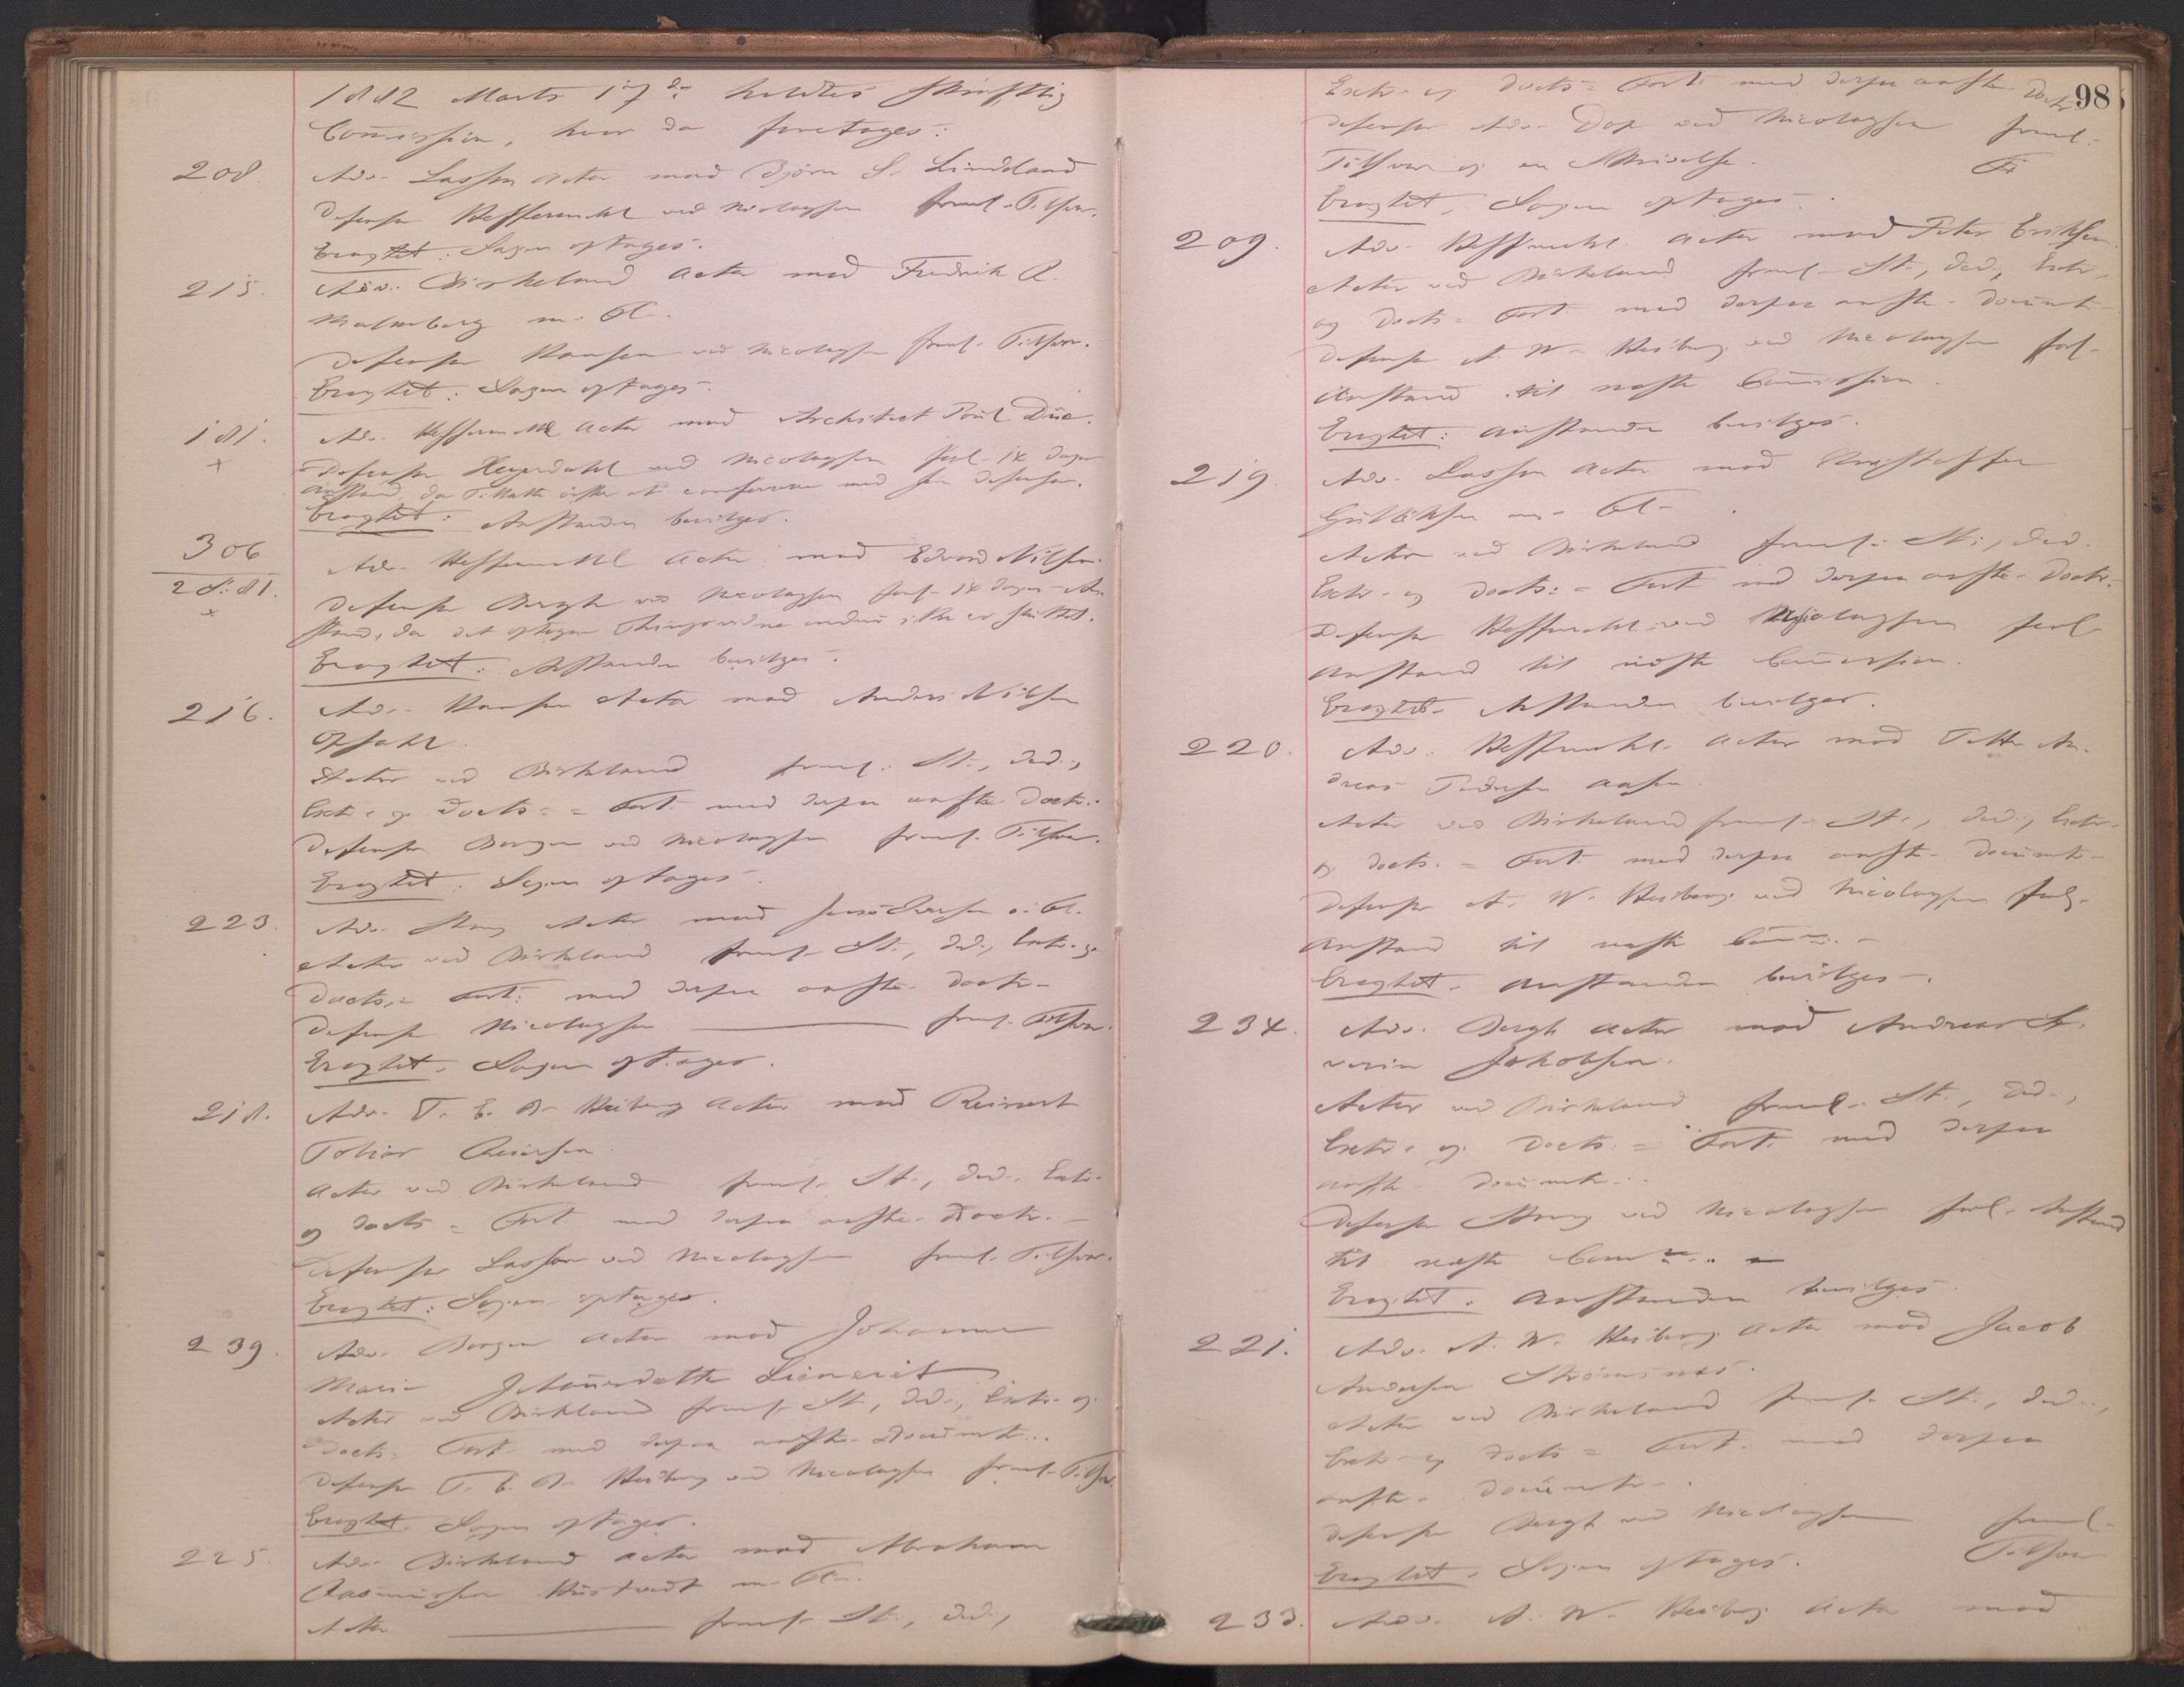 1882 Marts 17de holdtes skriftlig
Commission, hvor da foretages:
208. Adv. Lasson Actor mod Björn S. Lindland
Defensor Heffermehl ved Nicolaysen freml. Tilsvar.
Eragtet: Sagen optages.
215. Adv. Birkeland Actor mod Fredrik A.
Malmberg m. Fl.
Defensor Hansen ved Nicolaysen freml. Tilsvar.
Eragtet: Sagen optages.
181. Adv. Heffermehl Actor mod Architect Poul Due.
+ Defensor Heyerdahl ved Nicolaysen forl. 14 Dages
Anstand, da Tiltalte önsker at conferere med sin Defensor.
Eragtet: Anstanden bevilges.
306 Adv. Heffermehl Actor mod Edvard Nilsen
2 S: 81. Defensor Bergh ved Nicolaysen forl. 14 Dages An-
x stand, da det optagne Thingsvidne endnu ikke er sluttet.
Eragtet: Anstanden bevilges.
216. Adv. Hansen Actor mod Anders Nilsen
Opsahl.
Actor ved Birkeland freml. St., Ded.,
Extr. og Docts. = Fort. med derpaa anførte Doctr.
Defensor Borgen ved Nicolaysen freml. Tilsvar.
Eragtet: Sagen optages.
223. Adv. Strøm Actor mod Jens Iversen o. Fl.
Actor ved Birkeland freml. St., Ded., Extr. og
Docts. = Fort. med derpaa anførte Doctr.
Defensor Nicolaysen freml. Tilsvar.
Eragtet. Sagen optages.
218. Adv. T. E. B. Heiberg Actor mod Reinert
Tobias Reiersen
Actor ved Birkeland freml. St., Ded., Extr.
og Docts = Fort med derpaa anførte Doctr.
Defensor Lasson ved Nicolaysen freml. Tilsvar.
Eragtet: Sagen optages.
239. Adv. Borgen Actor mod Johanne
Marie Johannesdatter
Actor ved Birkeland freml. St., Ded., Extr. og
Docts. Fort. med derpaa anførte Documtr.
Defensor T. E. B. Heiberg ved Nicolaysen freml. Tilsv.
Eragtet. Sagen optages.
225. Adv. Birkeland Actor mod Abraham
Rasmussen m. Fl.
Actor freml. St., Ded.,
98
Extr. og Docts = Fort. med derpaa anførte Doctr.
Defensor Adv. Dop ved Nicolaysen freml.
Tilsvar og en Skrivelse.
Eragtet. Sagen optages.
209. Adv. Heffermehl Actor mod Peter Eriksen
Actor ved Birkeland freml. St., Ded., Extr.
og Docts = Fort med derpaa anførte Documt
Defensor A. W. Heiberg ved Nicolaysen forl.
Anstand til næste Commission.
Eragtet: Anstanden bevilges.
219. Adv. Lasson Actor mod Kristoffer
Gulliksen m. Fl.
Actor ved Birkeland freml. St., Ded.
Extr. og Docts: = Fort med derpaa anførte Doctr.
Defensor Heffermehl ved Nicolaysen forl.
Anstand til næste Commission.
Eragtet. Anstanden bevilges.
220. Adv. Heffermehl Actor mod Tiltte An-
dreas Pedersen Aasen.
Actor ved Birkeland freml. St., Ded., Extr.
og Docts. = Fort. med derpaa anførte Documtr
Defensor A. W. Heiberg ved Nicolaysen forl.
Anstand til næste Comm..
Eragtet. Anstanden bevilges.
234. Adv. Bergh Actor mod Andreas Se-
verin Jakobsen.
Actor ved Birkeland freml. St., Ded.,
Extr. og Docts. = Fort. med derpaa
anførte Documtr.
Defensor Strøm ved Nicolaysen forl. Anstand
til næste Comm..
Eragtet. Anstanden bevilges
221. Adv. A. W. Heiberg Actor mod Jacob
Andersen Strömsnes.
Actor ved Birkeland freml. St., Ded.,
Extr. og Docts = Fort. med derpaa
anførte Documtr.
Defensor Bergh ved Nicolaysen freml.
Tilsvar
Eragtet. Sagen optages.
233. Adv. A. W. Heiberg Actor mod